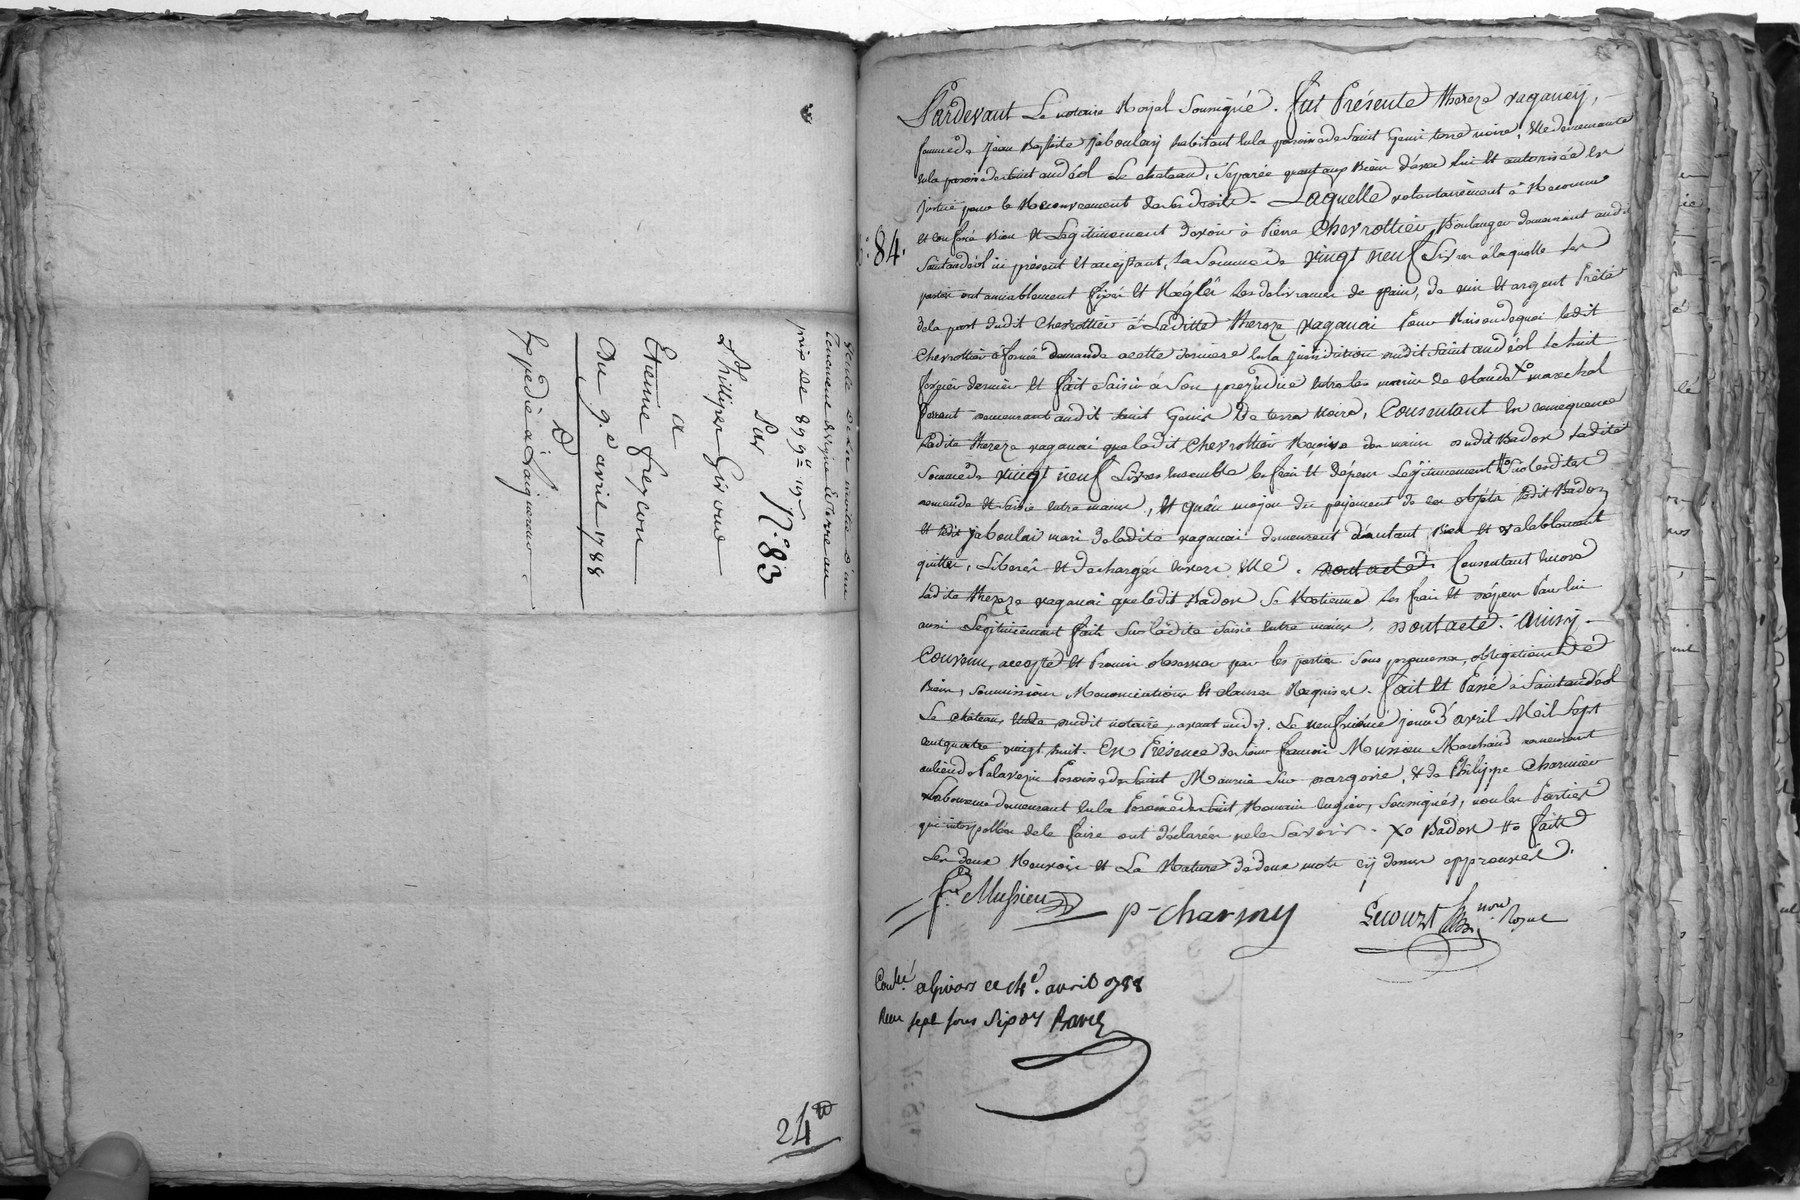 Vente de la moitié d'un
tenement de vigne et terre au
prix de 899 ᵗᵗ 19 ˢ
N.° 83
Par
Philippe Giroud
a
Etienne frexcon
Du 9.e avril 1788
D
Expédié a L'aiquereur
24 ᵗᵗ
N.° 84.
Pardevant Le notaire Royal soussigné. fut Présente thereze ragauey,
femme de jean Baptiste jaboulay habitant en la paroisse de saint Genis terre noire, Elle demeurante
en la paroisse de saint andéol Le chateau, separée quant aux Biens d'avec lui Et autorisée en
justice pour le Recouvrement de ses droits. Laquelle volontairement à Reconnu
Et confessé Bien Et Legitimement devoir à Pierre Chevrottier, Boulanger demeurant audit
Saint andéol ici présent Et acceptant, la Somme de vingt neuf Livres à laquelle les
parties ont amiablement fixés Et Réglés Les delivrances de pain, de vin Et argent Prêté
de la part dudit Chevrottier à Laditte thereze ragauai Pour Raison de quoi ledit
Chevrottier a formé demande a cette derniere en la juridiction dudit Saint andéol le huit
fevrier dernier Et fait Saisir à Son prejudice entre les mains de claude Xo marechal
ferrant demeurant audit Saint Genis De terre Noire, Consentant En consequence
Ladite thereze ragauai que ledit Chevrottier Recoive des mains dudit Badon Ladite
Somme de vingt neuf Livres ensemble les frais Et dépens Legitimement tto Sur lesdites
demande Et Saisie entre mains, Et qu'au moyen du payement de ces objets ledit Badon
et ledit jaboulai mari de ladite ragauai demeurent d'autant Bien Et valablement
quittes, Liberés Et dechargés envers Elle. dont acte. Consentant encore
Ladite thereze ragauai que ledit Badon Se Retienne Les frais Et dépens Par lui
aussi Legitimement faits Sur Ladite Saisie entre mains. dont acte. ainsy
Convenu, accepté Et Promis observer par les parties Sous promesses, obligations de
Biens, Soumissions Renonciations Et clauses Requises. fait Et Passé à Saint andéol
Le chateau, Etude dudit notaire, avant midy. Le neufvieme jour d'avril Mil Sept
cent quatre vingt huit. En Présence de sieur françois Mussieu Marchand demeurant
au lieu de Palavezin Paroisse de Saint Maurice Sur dargoire, & de Philippe Charmier
Laboureur demeurant en la Paroisse de Saint Romain en gier, Soussignés, non les Parties
qui interpellées de le faire ont déclarées ne le Savoir. Xo Badon tto faits
Les deux Renvois Et La Rature de deux mots cy dessus approuvés.
f. Mussieu
p- Charmy
Lecourt nore. Royal
Conlé. a Givors ce 14e. avril 1788
Reçu sept sous six drs Barrey